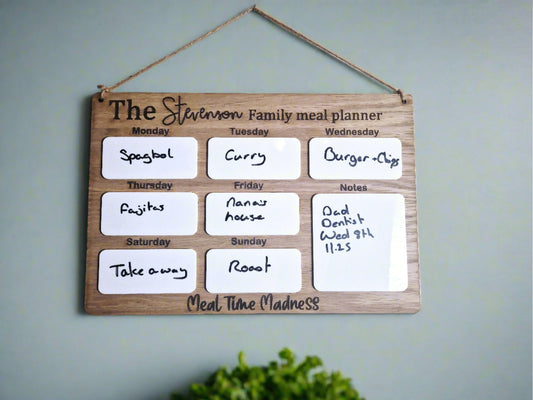 The Stevenson Family meal planner
Monday Tuesday Wednesday
Spagbol Curry Burger + Chips
Thursday Friday Notes
Fajitas
Nana's
house
Dad
Dentist
Wed 8th
11.25
Saturday Sunday
Take away Roast
Meal Time Madness